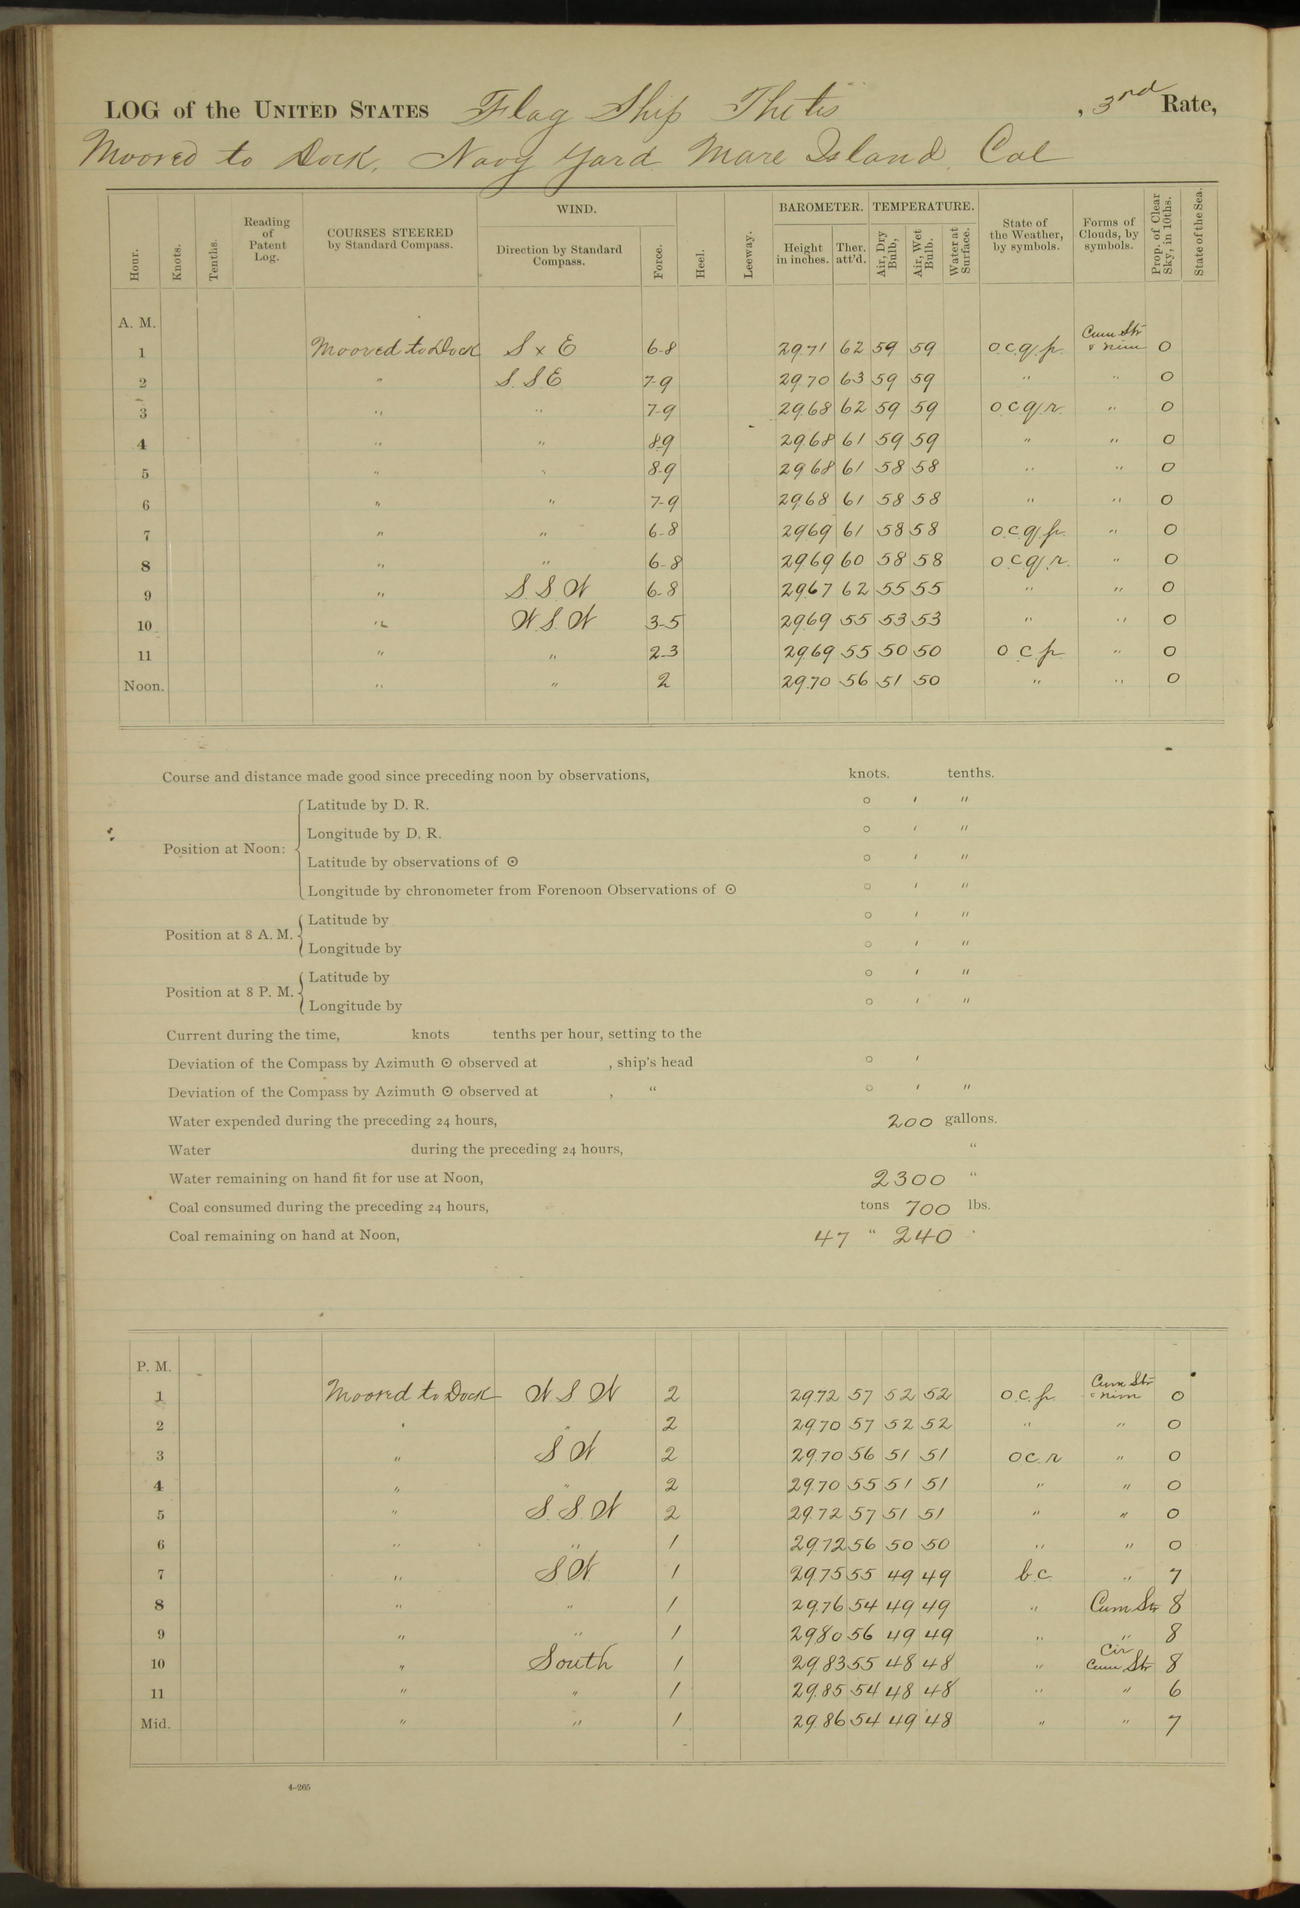 LOG of the UNITED STATES Flag Ship Thetis, 3rd Rate,
Moored to Dock, Navy Yard Mare Island, Cal
Hour. Knots. Tenths. Reading of Patent Log. COURSES STEERED by Standard Compass. WIND. Direction by Standard Compass. Force. Heel. Leeway. BAROMETER. Height in inches. Ther. att'd. TEMPERATURE. Air, Dry Bulb, Air, Wet Bulb. Water at Surface. State of the Weather, by symbols. Forms of Clouds, by symbols. Prop. of Clear Sky, in 10ths. State of the Sea.
A. M.
1 Moored to Dock S x E 6-8 29.71 62 59 59 o.c.q.p. Cum Str & nim 0
2 " S.S.E 7-9 29.70 63 59 59 " " 0
3 " " 7-9 29.68 62 59 59 o c q.r. " 0
4 " " 8-9 29.68 61 59 59 " " 0
5 " " 8-9 29.68 61 58 58 " " 0
6 " " 7-9 29.68 61 58 58 " " 0
7 " " 6-8 29.69 61 58 58 o.c.q.p. " 0
8 " " 6-8 29.69 60 58 58 o.c.q.r. " 0
9 " S.S.W 6-8 29.67 62 55 55 " " 0
10 " W.S.W 3-5 29.69 55 53 53 " " 0
11 " " 2-3 29.69 55 50 50 o c p " 0
Noon. " " 2 29.70 56 51 50 " " 0
Course and distance made good since preceding noon by observations, knots. tenths.
Position at Noon: Latitude by D. R. ° ′ ″
Longitude by D. R. ° ′ ″
Latitude by observations of ⊙ ° ′ ″
Longitude by chronometer from Forenoon Observations of ⊙ ° ′ ″
Position at 8 A. M. Latitude by ° ′ ″
Longitude by ° ′ ″
Position at 8 P. M. Latitude by ° ′ ″
Longitude by ° ′ ″
Current during the time, knots tenths per hour, setting to the
Deviation of the Compass by Azimuth ⊙ observed at , ship's head ° ′
Deviation of the Compass by Azimuth ⊙ observed at , " ° ′ ″
Water expended during the preceding 24 hours, 200 gallons.
Water during the preceding 24 hours, "
Water remaining on hand fit for use at Noon, 2300 "
Coal consumed during the preceding 24 hours, tons 700 lbs.
Coal remaining on hand at Noon, 47 " 240 "
P. M.
1 Moored to Dock W S W 2 29.72 57 52 52 o.c.p. Cum Str & nim 0
2 " " 2 29.70 57 52 52 " " 0
3 " S W 2 29.70 56 51 51 o c. r " 0
4 " " 2 29.70 55 51 51 " " 0
5 " S.S.W 2 29.72 57 51 51 " " 0
6 " " 1 29.72 56 50 50 " " 0
7 " S W. 1 29.75 55 49 49 b.c. " 7
8 " " 1 29.76 54 49 49 " Cum Str 8
9 " " 1 29.80 56 49 49 " " 8
10 " South 1 29.83 55 48 48 " Cir Cum Str 8
11 " " 1 29.85 54 48 48 " " 6
Mid. " " 1 29.86 54 49 48 " " 7
4-265